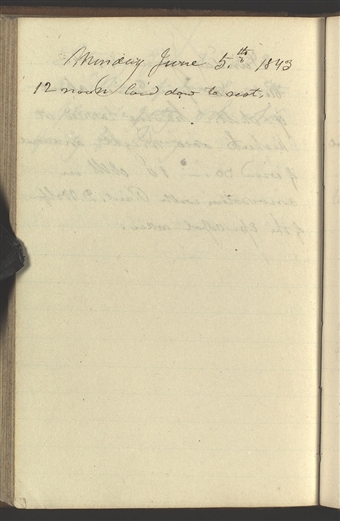 Monday June 5.th 1843
12 noon laid dow to rest.